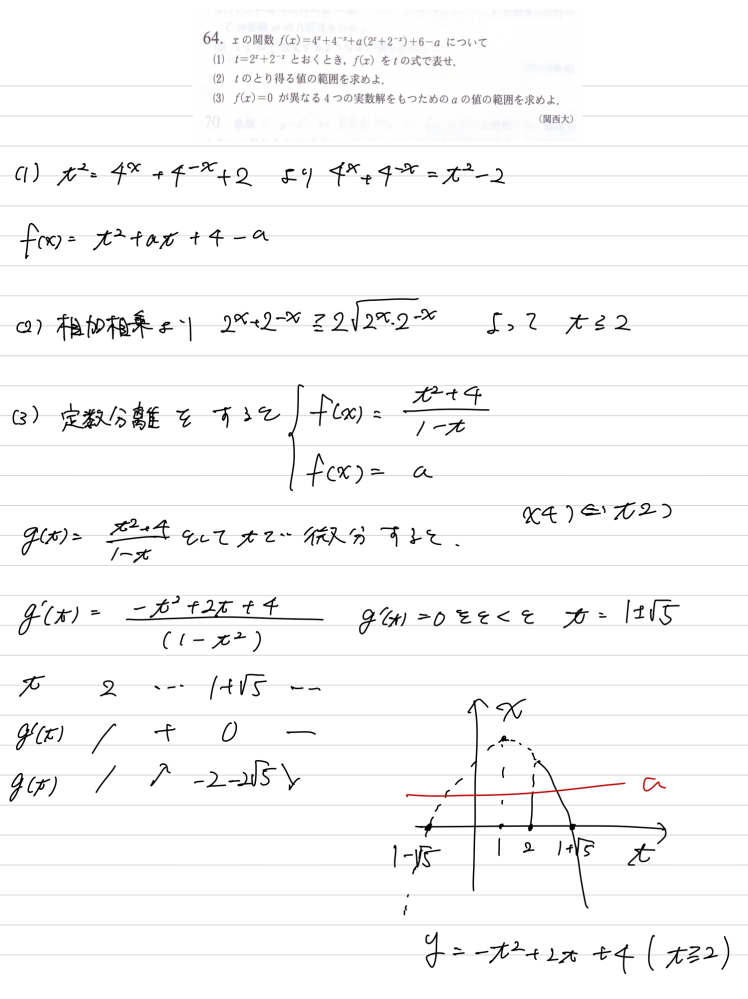 64. xの関数 f(x)=4ˣ+4⁻ˣ+a(2ˣ+2⁻ˣ)+6−a について
(1) t=2ˣ+2⁻ˣ とおくとき，f(x) をtの式で表せ．
(2) tのとり得る値の範囲を求めよ．
(3) f(x)=0 が異なる4つの実数解をもつためのaの値の範囲を求めよ．
(関西大)
(1) t²= 4ˣ+4⁻ˣ+2 より 4ˣ+4⁻ˣ=t²-2
f(x)= t²+at+4-a
(2) 相加相乗より 2ˣ+2⁻ˣ≧2√2ˣ·2⁻ˣ よって t≧2
(3) 定数分離をすると { f(x)= (t²+4)/(1-t)
f(x)= a
x4つ⇔t2つ
g(t)= (t²+4)/(1-t) として tで 微分すると.
g'(t)= (-t²+2t+4)/(1-t²) g'(t)=0とくと t=1±√5
t 2 … 1+√5 …
g'(t) / + 0 −
g(t) / ↗ -2-2√5 ↘
x
a
1-√5 1 2 1+√5 t
y=-t²+2t+4 (t≧2)